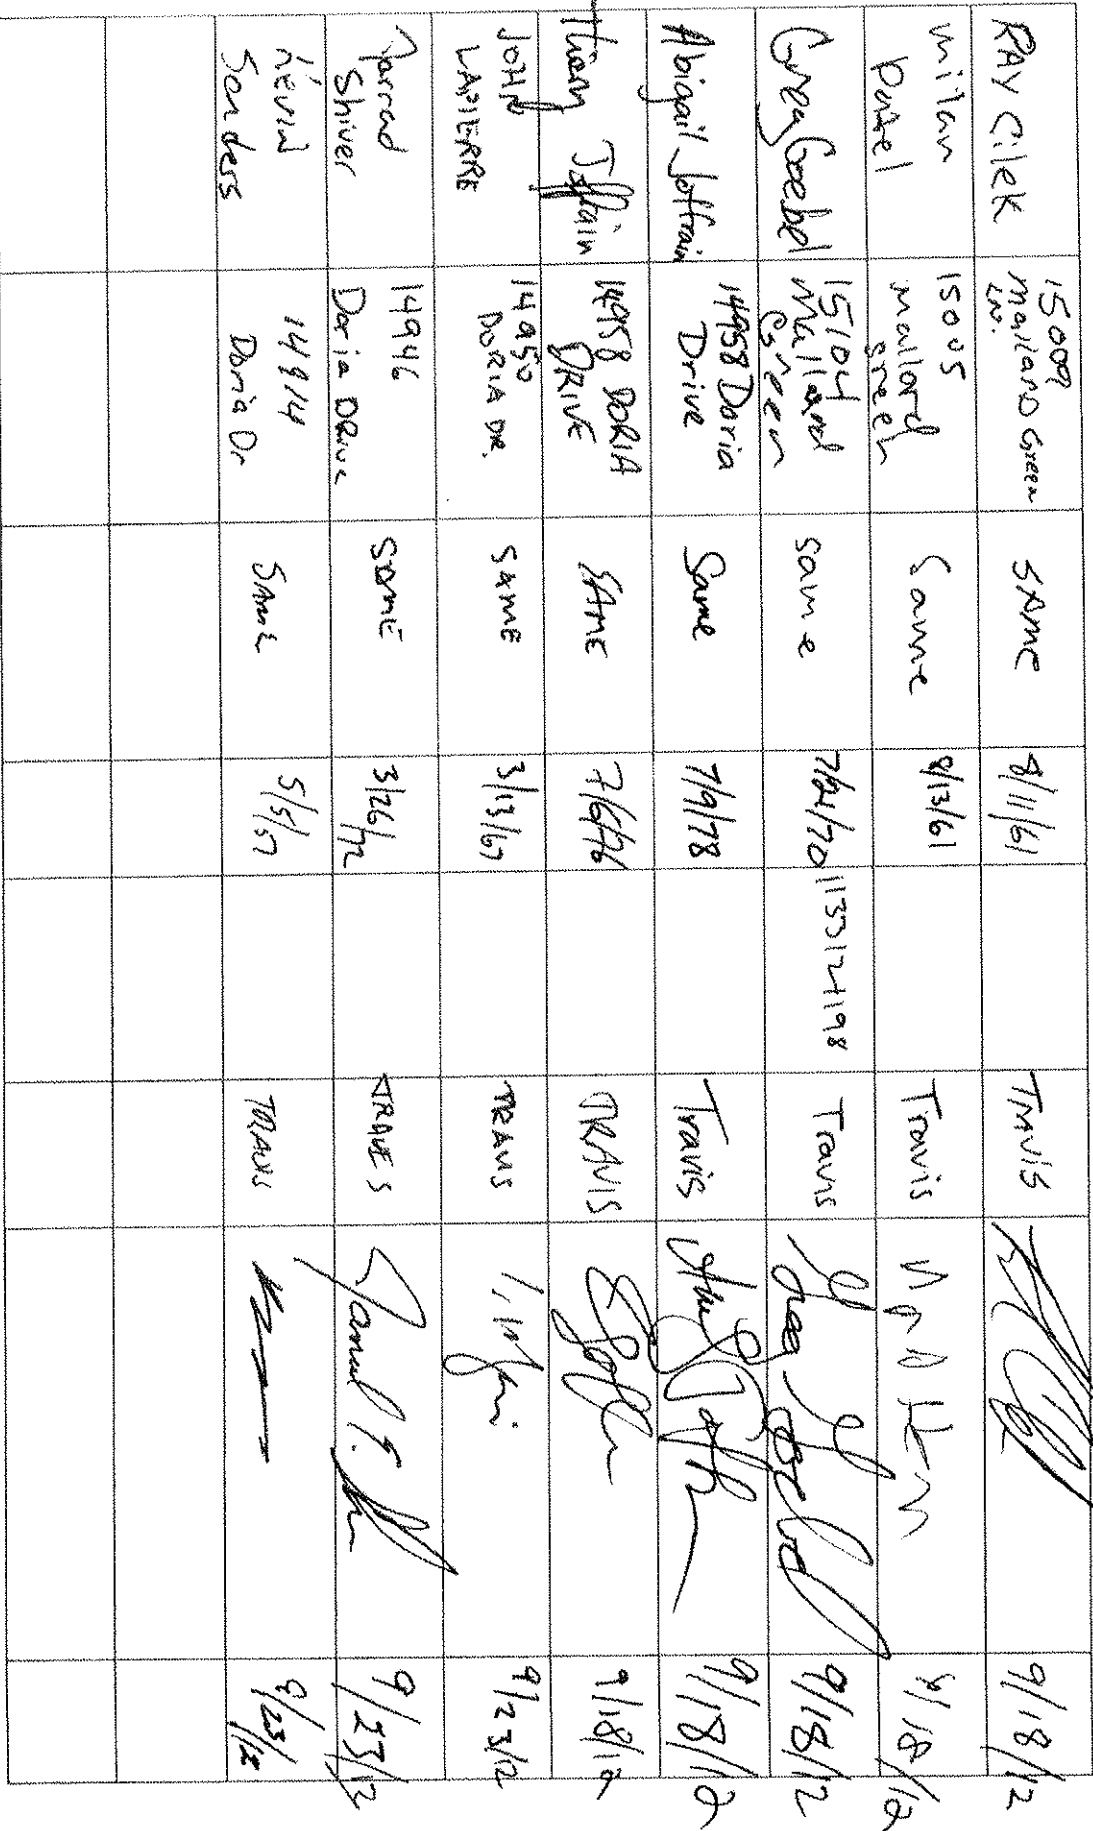 RAY CILEK
15009
Mailand Green
LN.
SAME
8/11/61
TRAVIS
9/18/12
milan
Patel
15005
mallard
green
Same
8/13/61
Travis
9/18/12
Greg Goebel
15104
Mallard
Green
same
7/24/70
1133124198
Travis
Greg Goebel
9/18/12
Abigail Joffrain
14958 Doria
Drive
Same
7/9/78
Travis
9/18/12
Thierry Joffrain
14958 DORIA
DRIVE
SAME
7/6/76
TRAVIS
9/18/12
JOHN
LAPIERRE
14950
DORIA DR.
SAME
3/13/67
TRAVIS
9/23/12
Jarrad
Shiver
14946
Doria DRive
SAME
3/26/72
TRAVES
9/23/12
Kevin
Sanders
14914
Doria Dr
SAME
5/5/57
TRAVIS
9/23/12